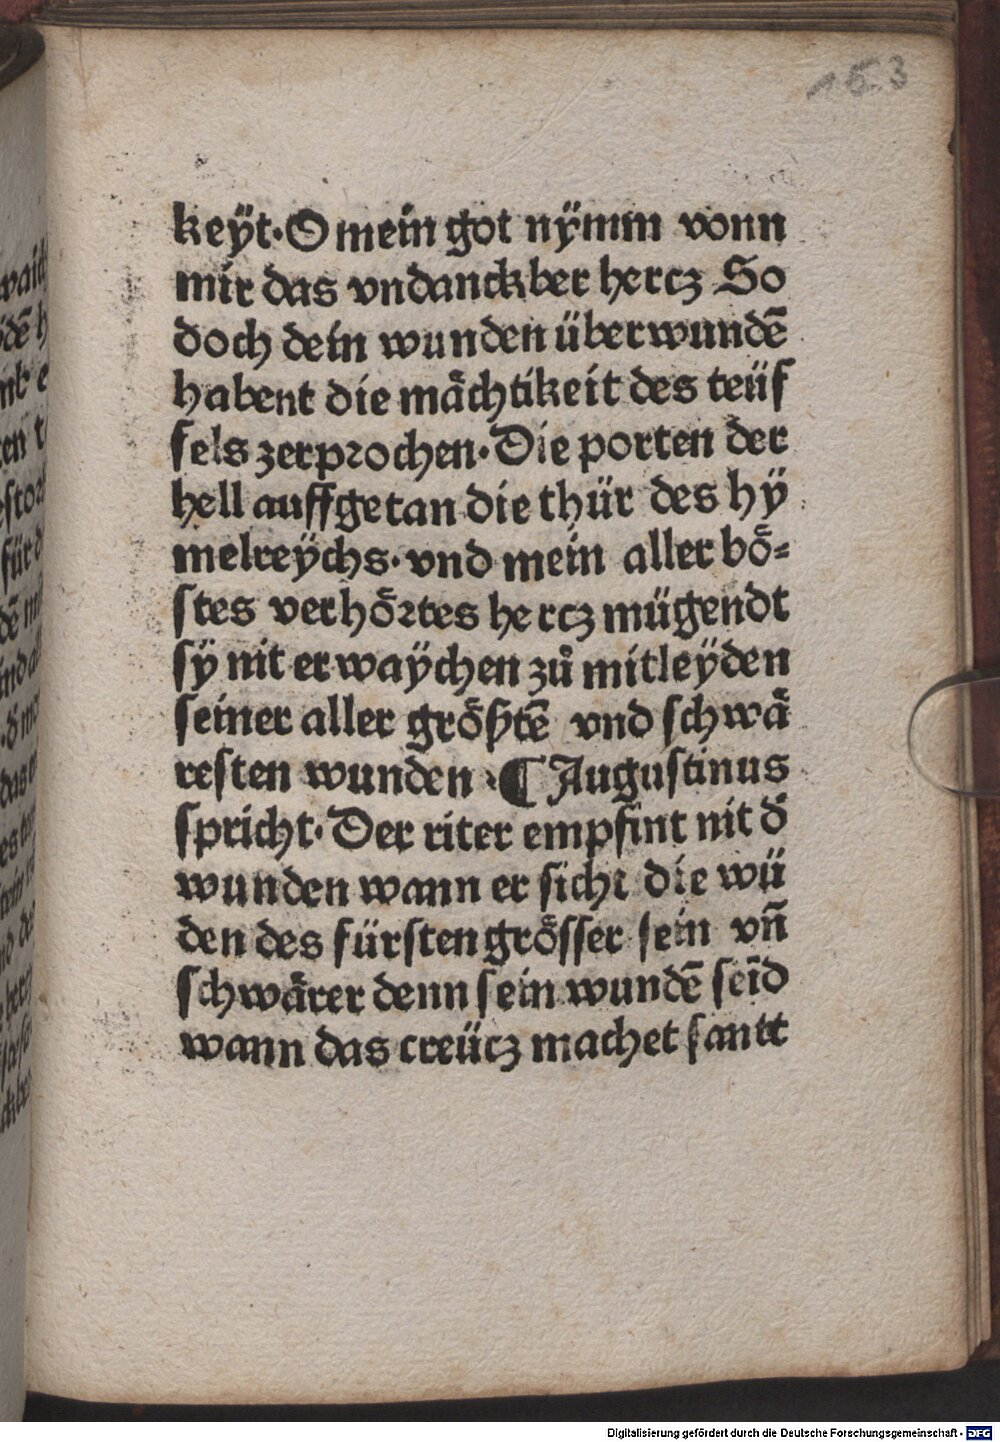 153
keÿt·O mein got nÿmm vonn
mir das vndanckber hercz So
doch dein wunden überwundē
habent die mächtikeit des teüf
fels zerprochen·Die porten der
hell auffgetan die thür des hÿ
melreÿchs·vnd mein aller bö⸗
stes verhörtes hercz mügendt
sÿ nit erwaÿchen zů mitleÿden
seiner aller größtē vnd schwä
resten wunden·¶Augustinus
spricht·Der riter empfint nit d̄
wunden wann er sicht die wū
den des fürsten grösser sein vn̄
schwärer denn sein wundē seīd
wann das creücz machet santt
Digitalisierung gefördert durch die Deutsche Forschungsgemeinschaft - DFG